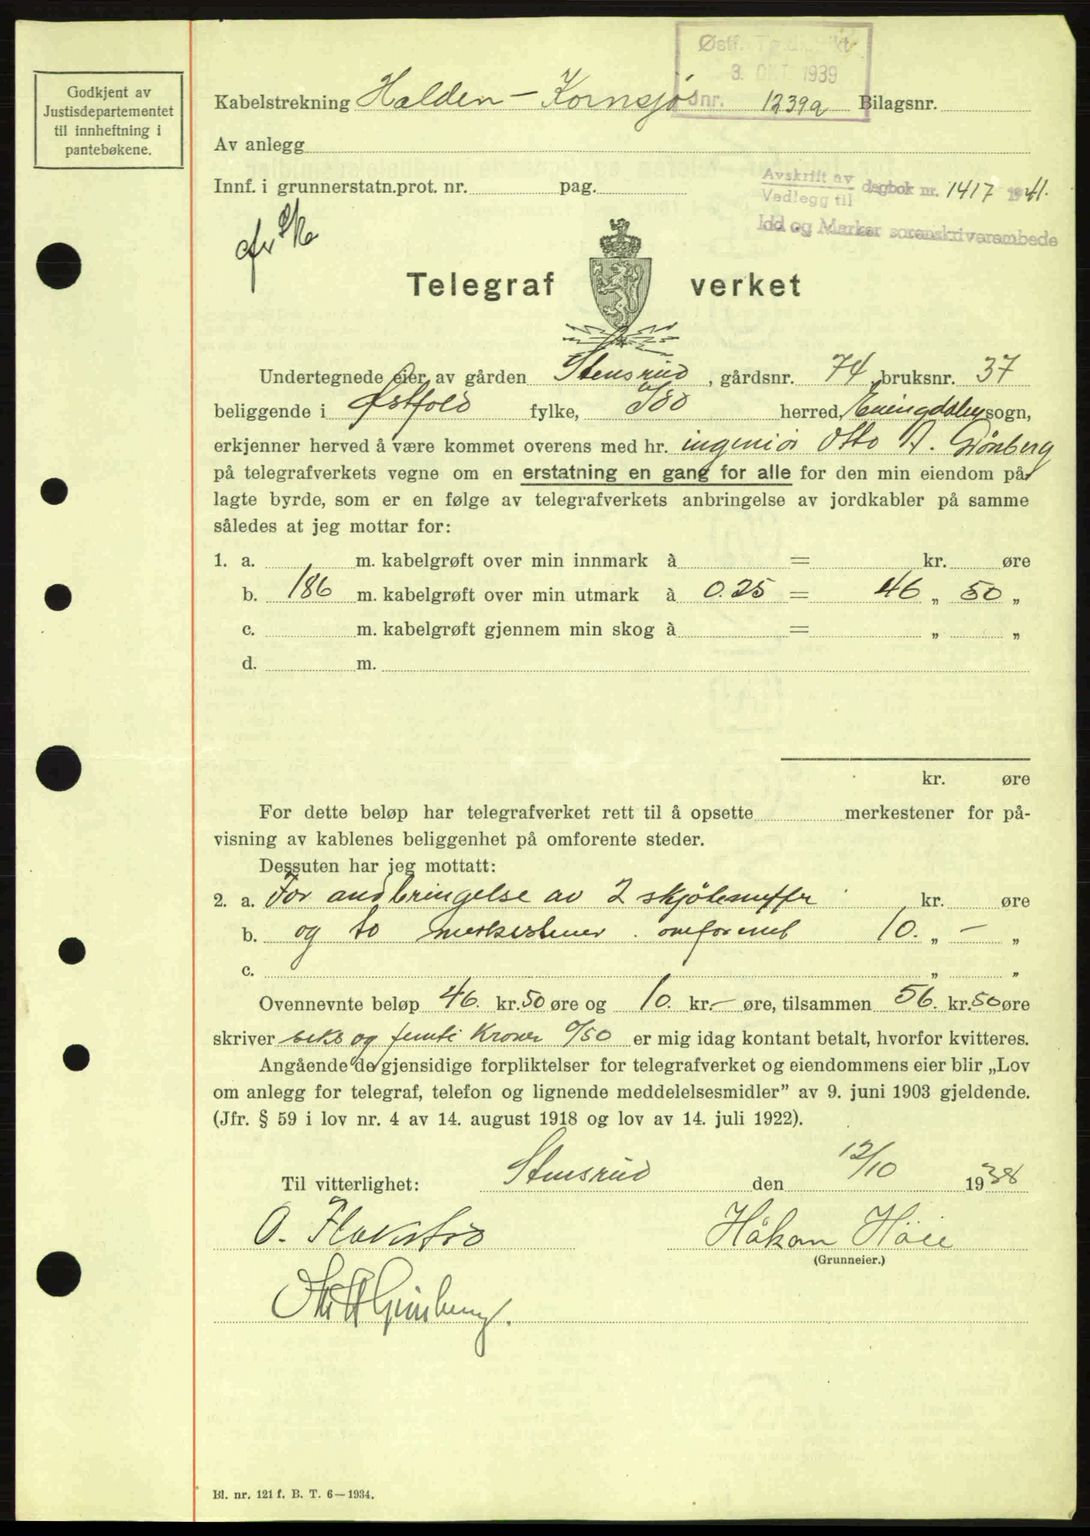 Godkjent av
Justisdepartementet
til innheftning i
pantebøkene.
3. OKT. 1939
Kabelstrekning Halden - Kornsjø nr. 1239a Bilagsnr.
Av anlegg
Innf. i grunnerstatn.prot. nr. pag.
Avskrift av
Vedlegg til dagbok nr. 1417 1941.
Idd og Marker sorenskriverembede
Telegraf verket
Undertegnede eier av gården Stensrud, gårdsnr. 74, bruksnr. 37
beliggende i Østfold fylke, Idd herred, Enningdalen sogn,
erkjenner herved å være kommet overens med hr. ingeniør Otto A. Grönberg
på telegrafverkets vegne om en erstatning en gang for alle for den min eiendom på-
lagte byrde, som er en følge av telegrafverkets anbringelse av jordkabler på samme
således at jeg mottar for:
1. a. m. kabelgrøft over min innmark à = kr. øre
b. 186 m. kabelgrøft over min utmark à 0.25 = 46 „ 50 „
c. m. kabelgrøft gjennem min skog à = „ „
d. m.
kr. øre
For dette beløp har telegrafverket rett til å opsette merkestener for på-
visning av kablenes beliggenhet på omforente steder.
Dessuten har jeg mottatt:
2. a. For andbringelse av 2 skjötemuffer kr. øre
b. og to merkestener omforenet 10. „ - „
c. „ „
Ovennevnte beløp 46. kr. 50 øre og 10. kr. - øre, tilsammen 56. kr. 50 øre
skriver seks og femti Kroner 0/50 er mig idag kontant betalt, hvorfor kvitteres.
Angående de gjensidige forpliktelser for telegrafverket og eiendommens eier blir „Lov
om anlegg for telegraf, telefon og lignende meddelelsesmidler” av 9. juni 1903 gjeldende.
(Jfr. § 59 i lov nr. 4 av 14. august 1918 og lov av 14. juli 1922).
Til vitterlighet: Stensrud den 12/10 1938
O. Flokstad Håkon Höie
(Grunneier.)
Bl. nr. 121 f. B. T. 6—1934.